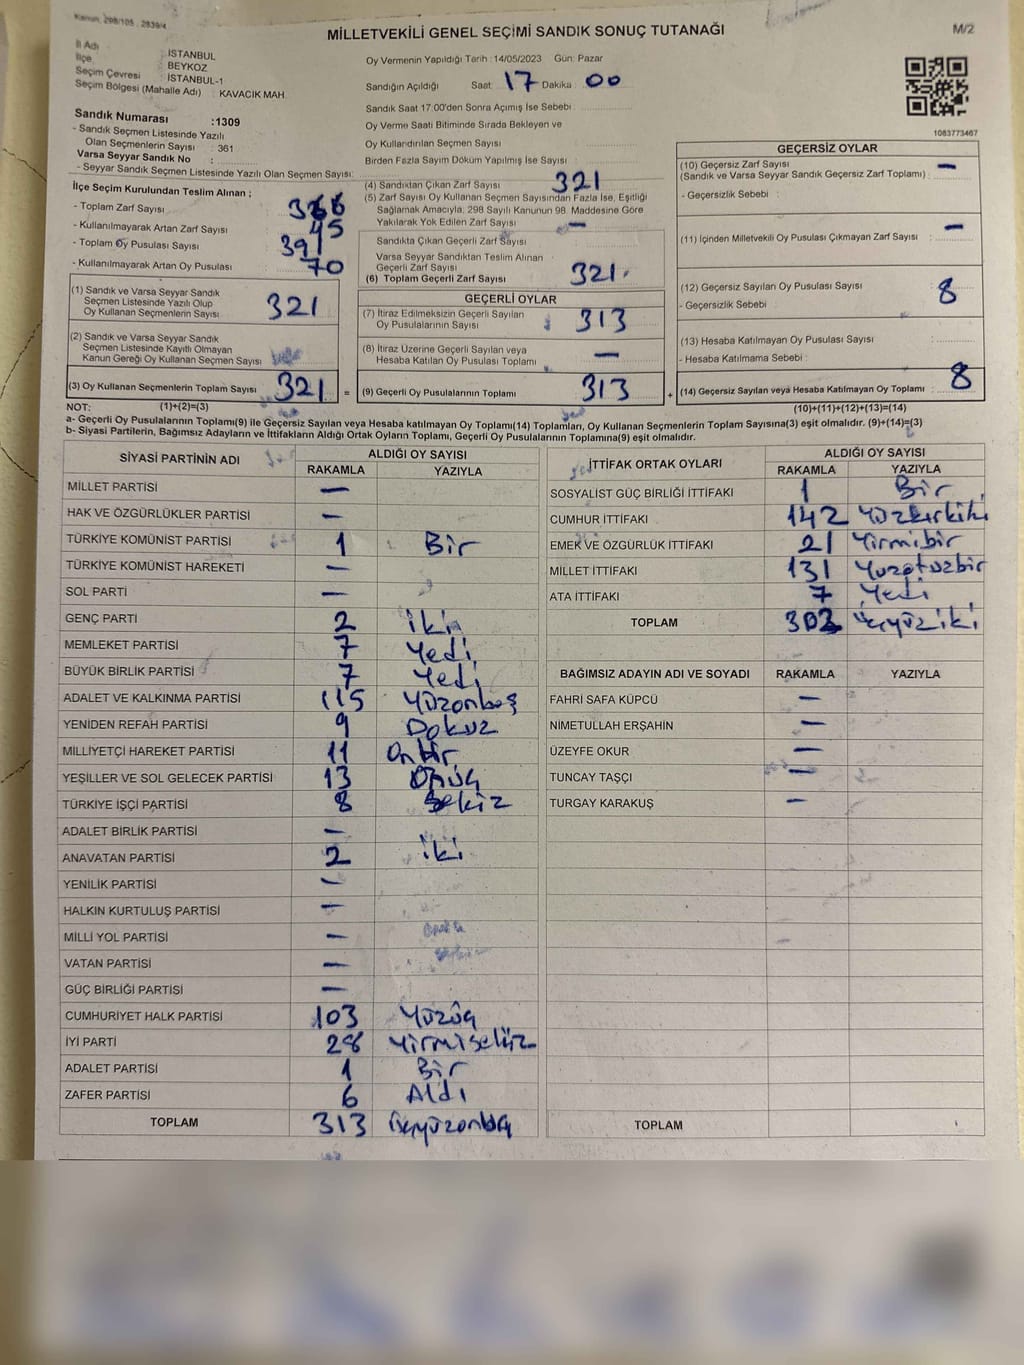 Kanun, 298/105, 2839/4
MİLLETVEKİLİ GENEL SEÇİMİ SANDIK SONUÇ TUTANAĞI
M/2
İl Adı : İSTANBUL
İlçe : BEYKOZ
Seçim Çevresi : İSTANBUL-1
Seçim Bölgesi (Mahalle Adı) : KAVACIK MAH.
Sandık Numarası :1309
- Sandık Seçmen Listesinde Yazılı
Olan Seçmenlerin Sayısı : 361
Varsa Seyyar Sandık No :
- Seyyar Sandık Seçmen Listesinde Yazılı Olan Seçmen Sayısı:
Oy Vermenin Yapıldığı Tarih : 14/05/2023 Gün: Pazar
Sandığın Açıldığı Saat: 17 Dakika : 00
Sandık Saat 17:00'den Sonra Açımış İse Sebebi :
Oy Verme Saati Bitiminde Sırada Bekleyen ve
Oy Kullandırılan Seçmen Sayısı :
Birden Fazla Sayım Döküm Yapılmış İse Sayısı :
1083773467
İlçe Seçim Kurulundan Teslim Alınan ;
- Toplam Zarf Sayısı : 366
- Kullanılmayarak Artan Zarf Sayısı : 45
- Toplam Oy Pusulası Sayısı : 391
- Kullanılmayarak Artan Oy Pusulası : 70
(1) Sandık ve Varsa Seyyar Sandık
Seçmen Listesinde Yazılı Olup
Oy Kullanan Seçmenlerin Sayısı : 321
(2) Sandık ve Varsa Seyyar Sandık
Seçmen Listesinde Kayıtlı Olmayan
Kanun Gereği Oy Kullanan Seçmen Sayısı :
(3) Oy Kullanan Seçmenlerin Toplam Sayısı : 321 =
(4) Sandıktan Çıkan Zarf Sayısı : 321
(5) Zarf Sayısı Oy Kullanan Seçmen Sayısından Fazla İse, Eşitliği
Sağlamak Amacıyla, 298 Sayılı Kanunun 98. Maddesine Göre
Yakılarak Yok Edilen Zarf Sayısı : —
Sandıkta Çıkan Geçerli Zarf Sayısı :
Varsa Seyyar Sandıktan Teslim Alınan
Geçerli Zarf Sayısı :
(6) Toplam Geçerli Zarf Sayısı : 321
GEÇERLİ OYLAR
(7) İtiraz Edilmeksizin Geçerli Sayılan
Oy Pusulalarının Sayısı : 313
(8) İtiraz Üzerine Geçerli Sayılan veya
Hesaba Katılan Oy Pusulası Toplamı : —
(9) Geçerli Oy Pusulalarının Toplamı : 313 +
GEÇERSİZ OYLAR
(10) Geçersiz Zarf Sayısı
(Sandık ve Varsa Seyyar Sandık Geçersiz Zarf Toplamı) : —
- Geçersizlik Sebebi :
(11) İçinden Milletvekili Oy Pusulası Çıkmayan Zarf Sayısı : —
(12) Geçersiz Sayılan Oy Pusulası Sayısı : 8
- Geçersizlik Sebebi :
(13) Hesaba Katılmayan Oy Pusulası Sayısı :
- Hesaba Katılmama Sebebi :
(14) Geçersiz Sayılan veya Hesaba Katılmayan Oy Toplamı : 8
NOT: (1)+(2)=(3)
(10)+(11)+(12)+(13)=(14)
a- Geçerli Oy Pusulalarının Toplamı(9) ile Geçersiz Sayılan veya Hesaba katılmayan Oy Toplamı(14) Toplamları, Oy Kullanan Seçmenlerin Toplam Sayısına(3) eşit olmalıdır. (9)+(14)=(3)
b- Siyasi Partilerin, Bağımsız Adayların ve İttifakların Aldığı Ortak Oyların Toplamı, Geçerli Oy Pusulalarının Toplamına(9) eşit olmalıdır.
SİYASİ PARTİNİN ADI ALDIĞI OY SAYISI
RAKAMLA YAZIYLA
MİLLET PARTİSİ —
HAK VE ÖZGÜRLÜKLER PARTİSİ —
TÜRKİYE KOMÜNİST PARTİSİ 1 Bir
TÜRKİYE KOMÜNİST HAREKETİ —
SOL PARTİ —
GENÇ PARTİ 2 iki
MEMLEKET PARTİSİ 7 Yedi
BÜYÜK BİRLİK PARTİSİ 7 Yedi
ADALET VE KALKINMA PARTİSİ 115 Yüzonbeş
YENİDEN REFAH PARTİSİ 9 Dokuz
MİLLİYETÇİ HAREKET PARTİSİ 11 Onbir
YEŞİLLER VE SOL GELECEK PARTİSİ 13 Onüç
TÜRKİYE İŞÇİ PARTİSİ 8 Sekiz
ADALET BİRLİK PARTİSİ —
ANAVATAN PARTİSİ 2 iki
YENİLİK PARTİSİ —
HALKIN KURTULUŞ PARTİSİ —
MİLLİ YOL PARTİSİ —
VATAN PARTİSİ —
GÜÇ BİRLİĞİ PARTİSİ —
CUMHURİYET HALK PARTİSİ 103 Yüzüç
İYİ PARTİ 28 Yirmisekiz
ADALET PARTİSİ 1 Bir
ZAFER PARTİSİ 6 Aldı
TOPLAM 313
İTTİFAK ORTAK OYLARI ALDIĞI OY SAYISI
RAKAMLA YAZIYLA
SOSYALİST GÜÇ BİRLİĞİ İTTİFAKI 1 Bir
CUMHUR İTTİFAKI 142 Yüzkırkiki
EMEK VE ÖZGÜRLÜK İTTİFAKI 21 Yirmibir
MİLLET İTTİFAKI 131 Yüzotuzbir
ATA İTTİFAKI 7 Yedi
TOPLAM 302 Üçyüziki
BAĞIMSIZ ADAYIN ADI VE SOYADI RAKAMLA YAZIYLA
FAHRİ SAFA KÜPCÜ —
NİMETULLAH ERŞAHİN —
ÜZEYFE OKUR —
TUNCAY TAŞÇI —
TURGAY KARAKUŞ —
TOPLAM